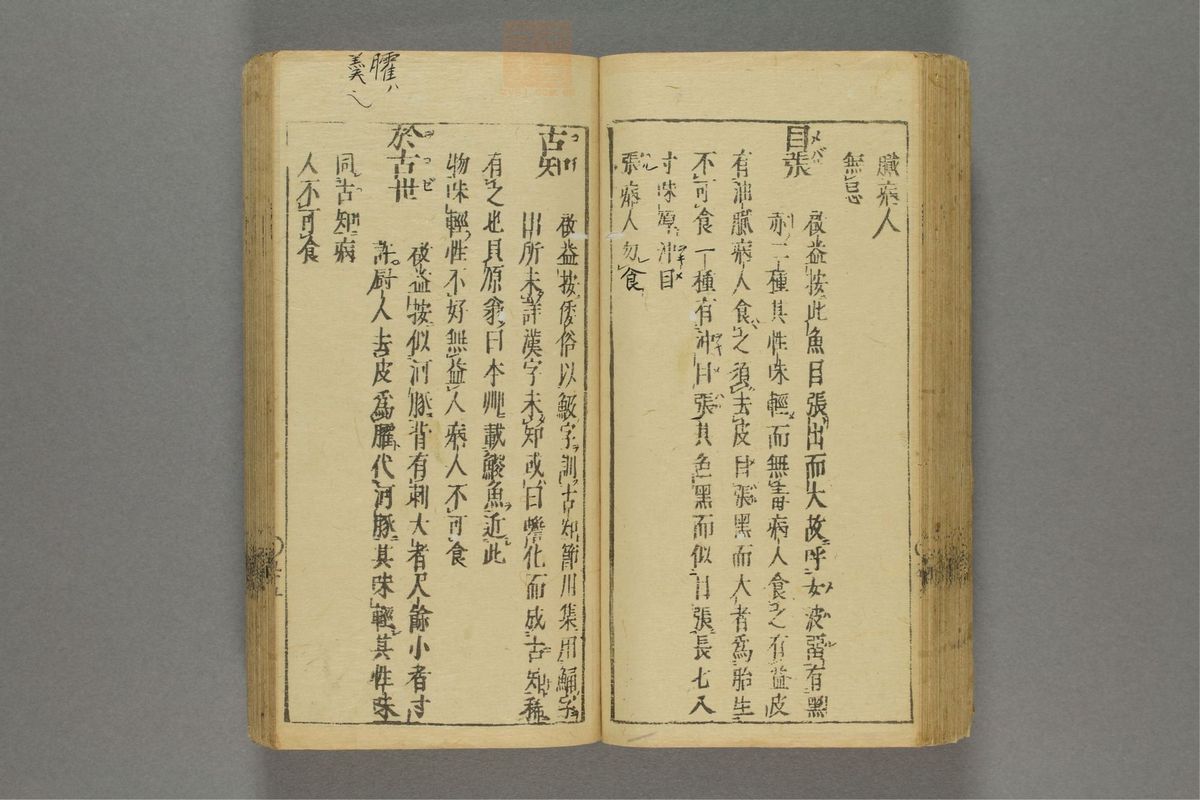 臓病人
無忌
目張 メバル
啓益按此魚目張出而大故呼女波留有黒
赤二種其性味軽而無毒病人食之有益皮
有油臓病人食之須去皮目張黒而大者為胎生
不可食一種有沖目張其色黒而似目張長七八
寸味厚沖目
張病人勿食
古知
啓益按倭俗以鮍字訓古知節用集用鯒字
出所未詳漢字未知或曰蟾化而成古知稀
有之也貝原翁曰本艸載鮻魚近此
物味軽性不好無益人病人不可食
於古世
啓益按似河豚背有刺大者尺餘小者寸
許厨人去皮為臛代河豚其味軽其性味
同古知病
人不可食
臛ハ
羹也